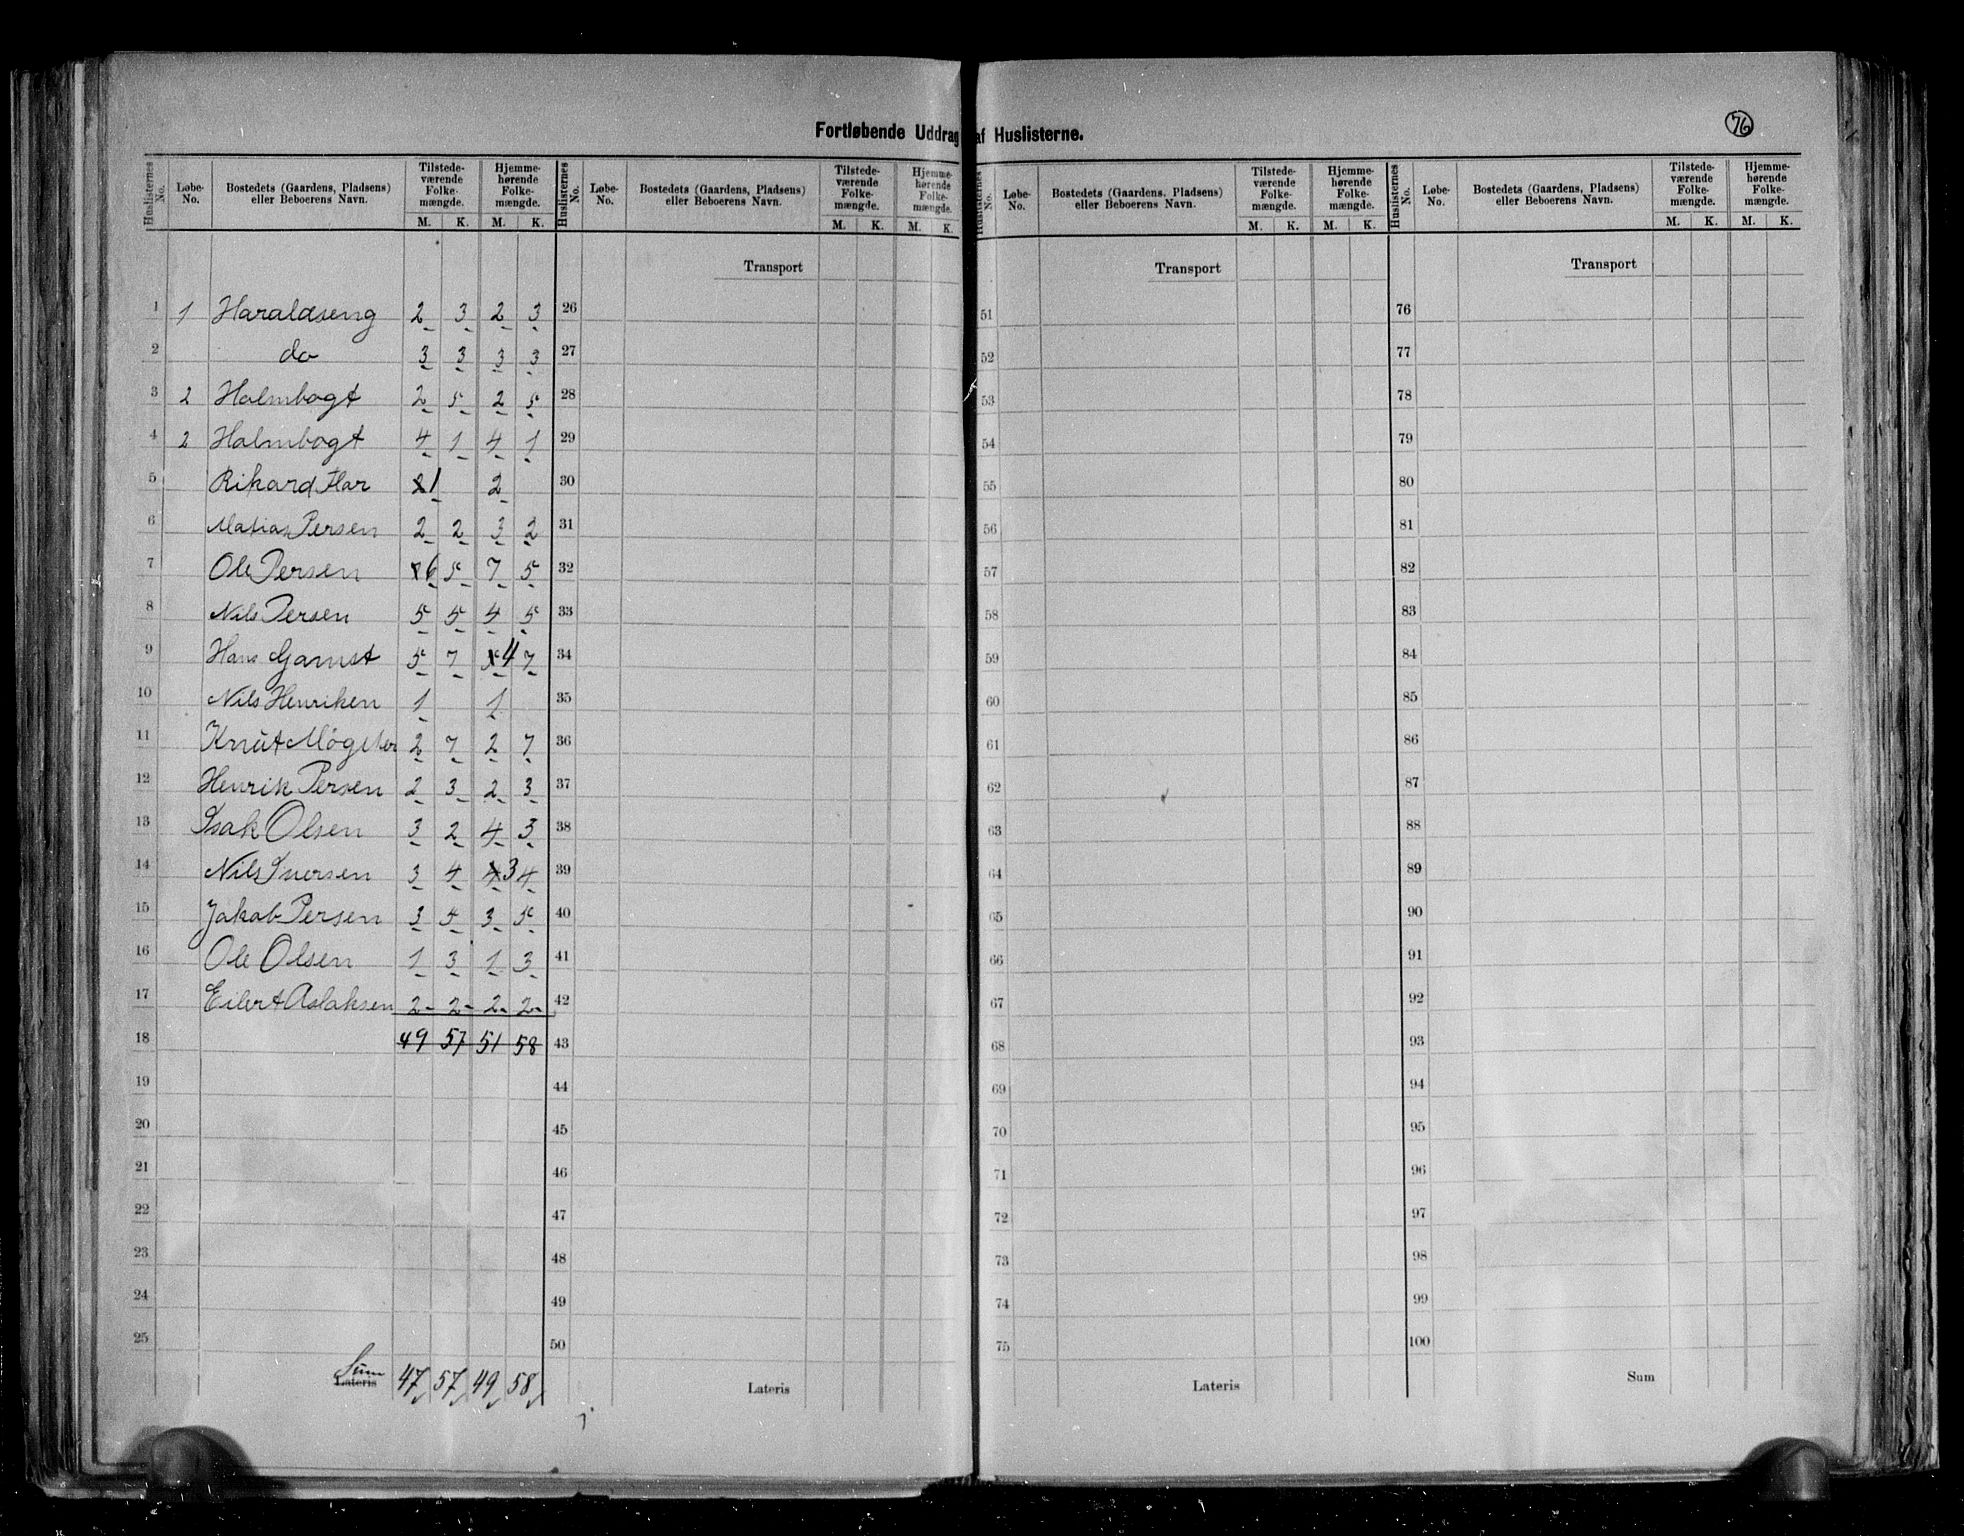 Fortløbende Uddrag af Huslisterne.
76
Huslisternes No. | Løbe-No. | Bostedets (Gaardens, Pladsens) eller Beboerens Navn. | Tilstedeværende Folkemængde. M. K. | Hjemmehørende Folkemængde. M. K.
Huslisternes No. | Løbe-No. | Bostedets (Gaardens, Pladsens) eller Beboerens Navn. | Tilstedeværende Folkemængde. M. K. | Hjemmehørende Folkemængde. M. K.
Huslisternes No. | Løbe-No. | Bostedets (Gaardens, Pladsens) eller Beboerens Navn. | Tilstedeværende Folkemængde. M. K. | Hjemmehørende Folkemængde. M. K.
Huslisternes No. | Løbe-No. | Bostedets (Gaardens, Pladsens) eller Beboerens Navn. | Tilstedeværende Folkemængde. M. K. | Hjemmehørende Folkemængde. M. K.
Transport Transport Transport
1 1 Haraldseng 2 3 2 3 26 51 76
2 do 3 3 3 3 27 52 77
3 2 Holmbogt 2 5 2 5 28 53 78
4 2 Holmbogt 4 1 4 1 29 54 79
5 Rikard Har 1 2 30 55 80
6 Matias Persen 2 2 3 2 31 56 81
7 Ole Persen 6 5 7 5 32 57 82
8 Nils Persen 5 5 4 5 33 58 83
9 Hans Gamst 5 7 4 7 34 59 84
10 Nils Henriken 1 1 35 60 85
11 Knut Møgster 2 7 2 7 36 61 86
12 Henrik Persen 2 3 2 3 37 62 87
13 Isak Olsen 3 2 4 3 38 63 88
14 Nils Iversen 3 4 3 4 39 64 89
15 Jakob Persen 3 5 3 5 40 65 90
16 Ole Olsen 1 3 1 3 41 66 91
17 Eilert Aslaksen 2 2 2 2 42 67 92
18 49 57 51 58 43 68 93
19 44 69 94
20 45 70 95
21 46 71 96
22 47 72 97
23 48 73 98
24 49 74 99
25 50 75 100
Sum
Lateris 47 57 49 58 Lateris Lateris Sum